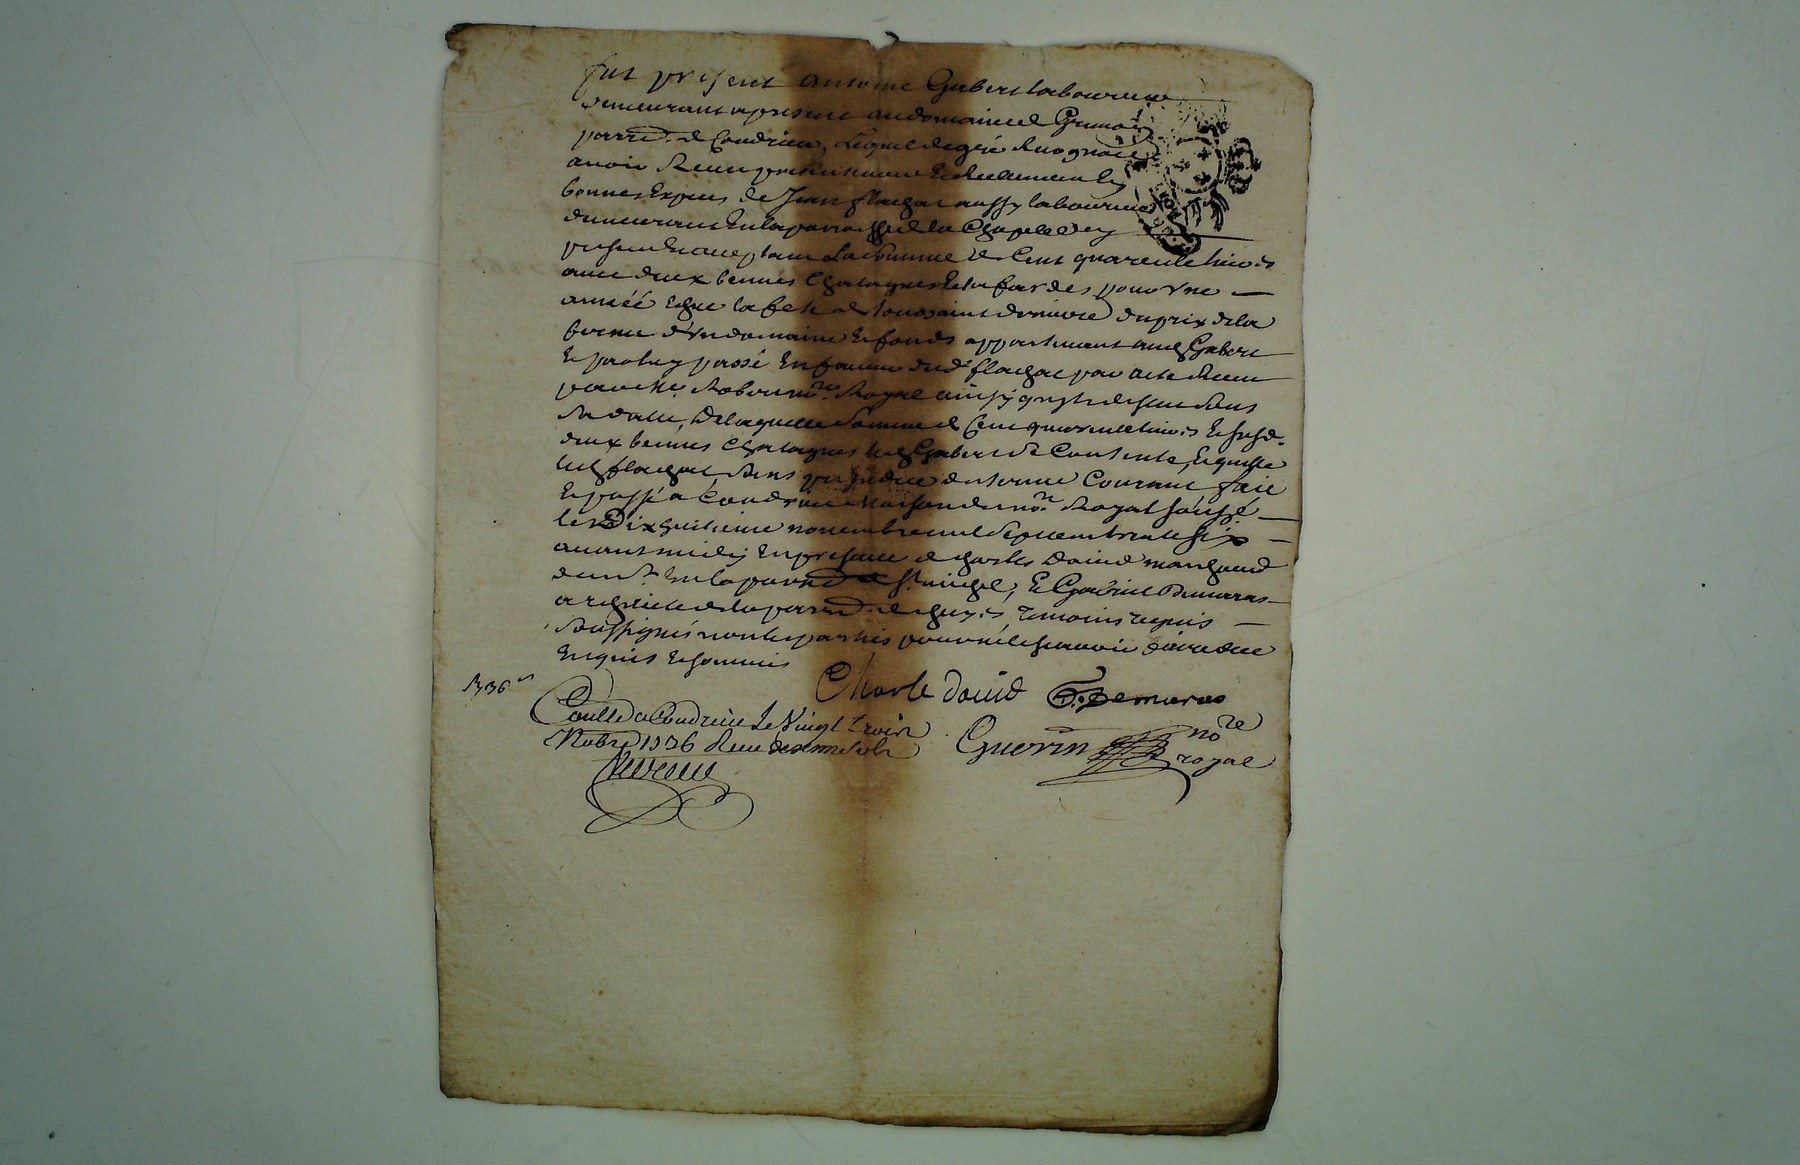 fut present antoine Gabert laboureur
demeurant a present au domaine de Grimo
parr.e de Condrieu, Lequel de gré Recognoit
avoir Receu presentement Et Reellement En
bonnes Especes de Jean flachat aussy laboureur
demeurant En la parroisse de la Chapelle Icy
present Et acceptant La Somme de Cent quarente livres
avec deux bennes Chatagnes pour Une
année Echue la fete de toussaint derniere du prix de la
ferme d'Un domaine Et fonds appartenant aud Gabert
Et par luy passé En faveur dud flachat par acte Receu
par Me No.re Royal ainsy qu'ils disent Sous
Sa datte, De laquelle Somme de Cent quarente livres Et susd.
deux bennes Chatagnes led Gabert Se Contente, Et quitte
led flachat, Sans prejudice du terme Courant fait
Et passé a Condrieu Maison du no.re Royal soussé
le Dix huitieme novembre mil Sept cent trente Six
avant midy En presence de Charles David marchand
demt En la parr.e de St michel, Et Gabriel Demaras
de la parr.e de temoins requis
Soussignés non les parties pour ne le scavoir de ce due
Enquis Et sommés
1736
Charle David G. Demaras
Conllé a Condrieu le Vingt trois
Nobre 1736 Receu douze sols
Guerin no.re
royal